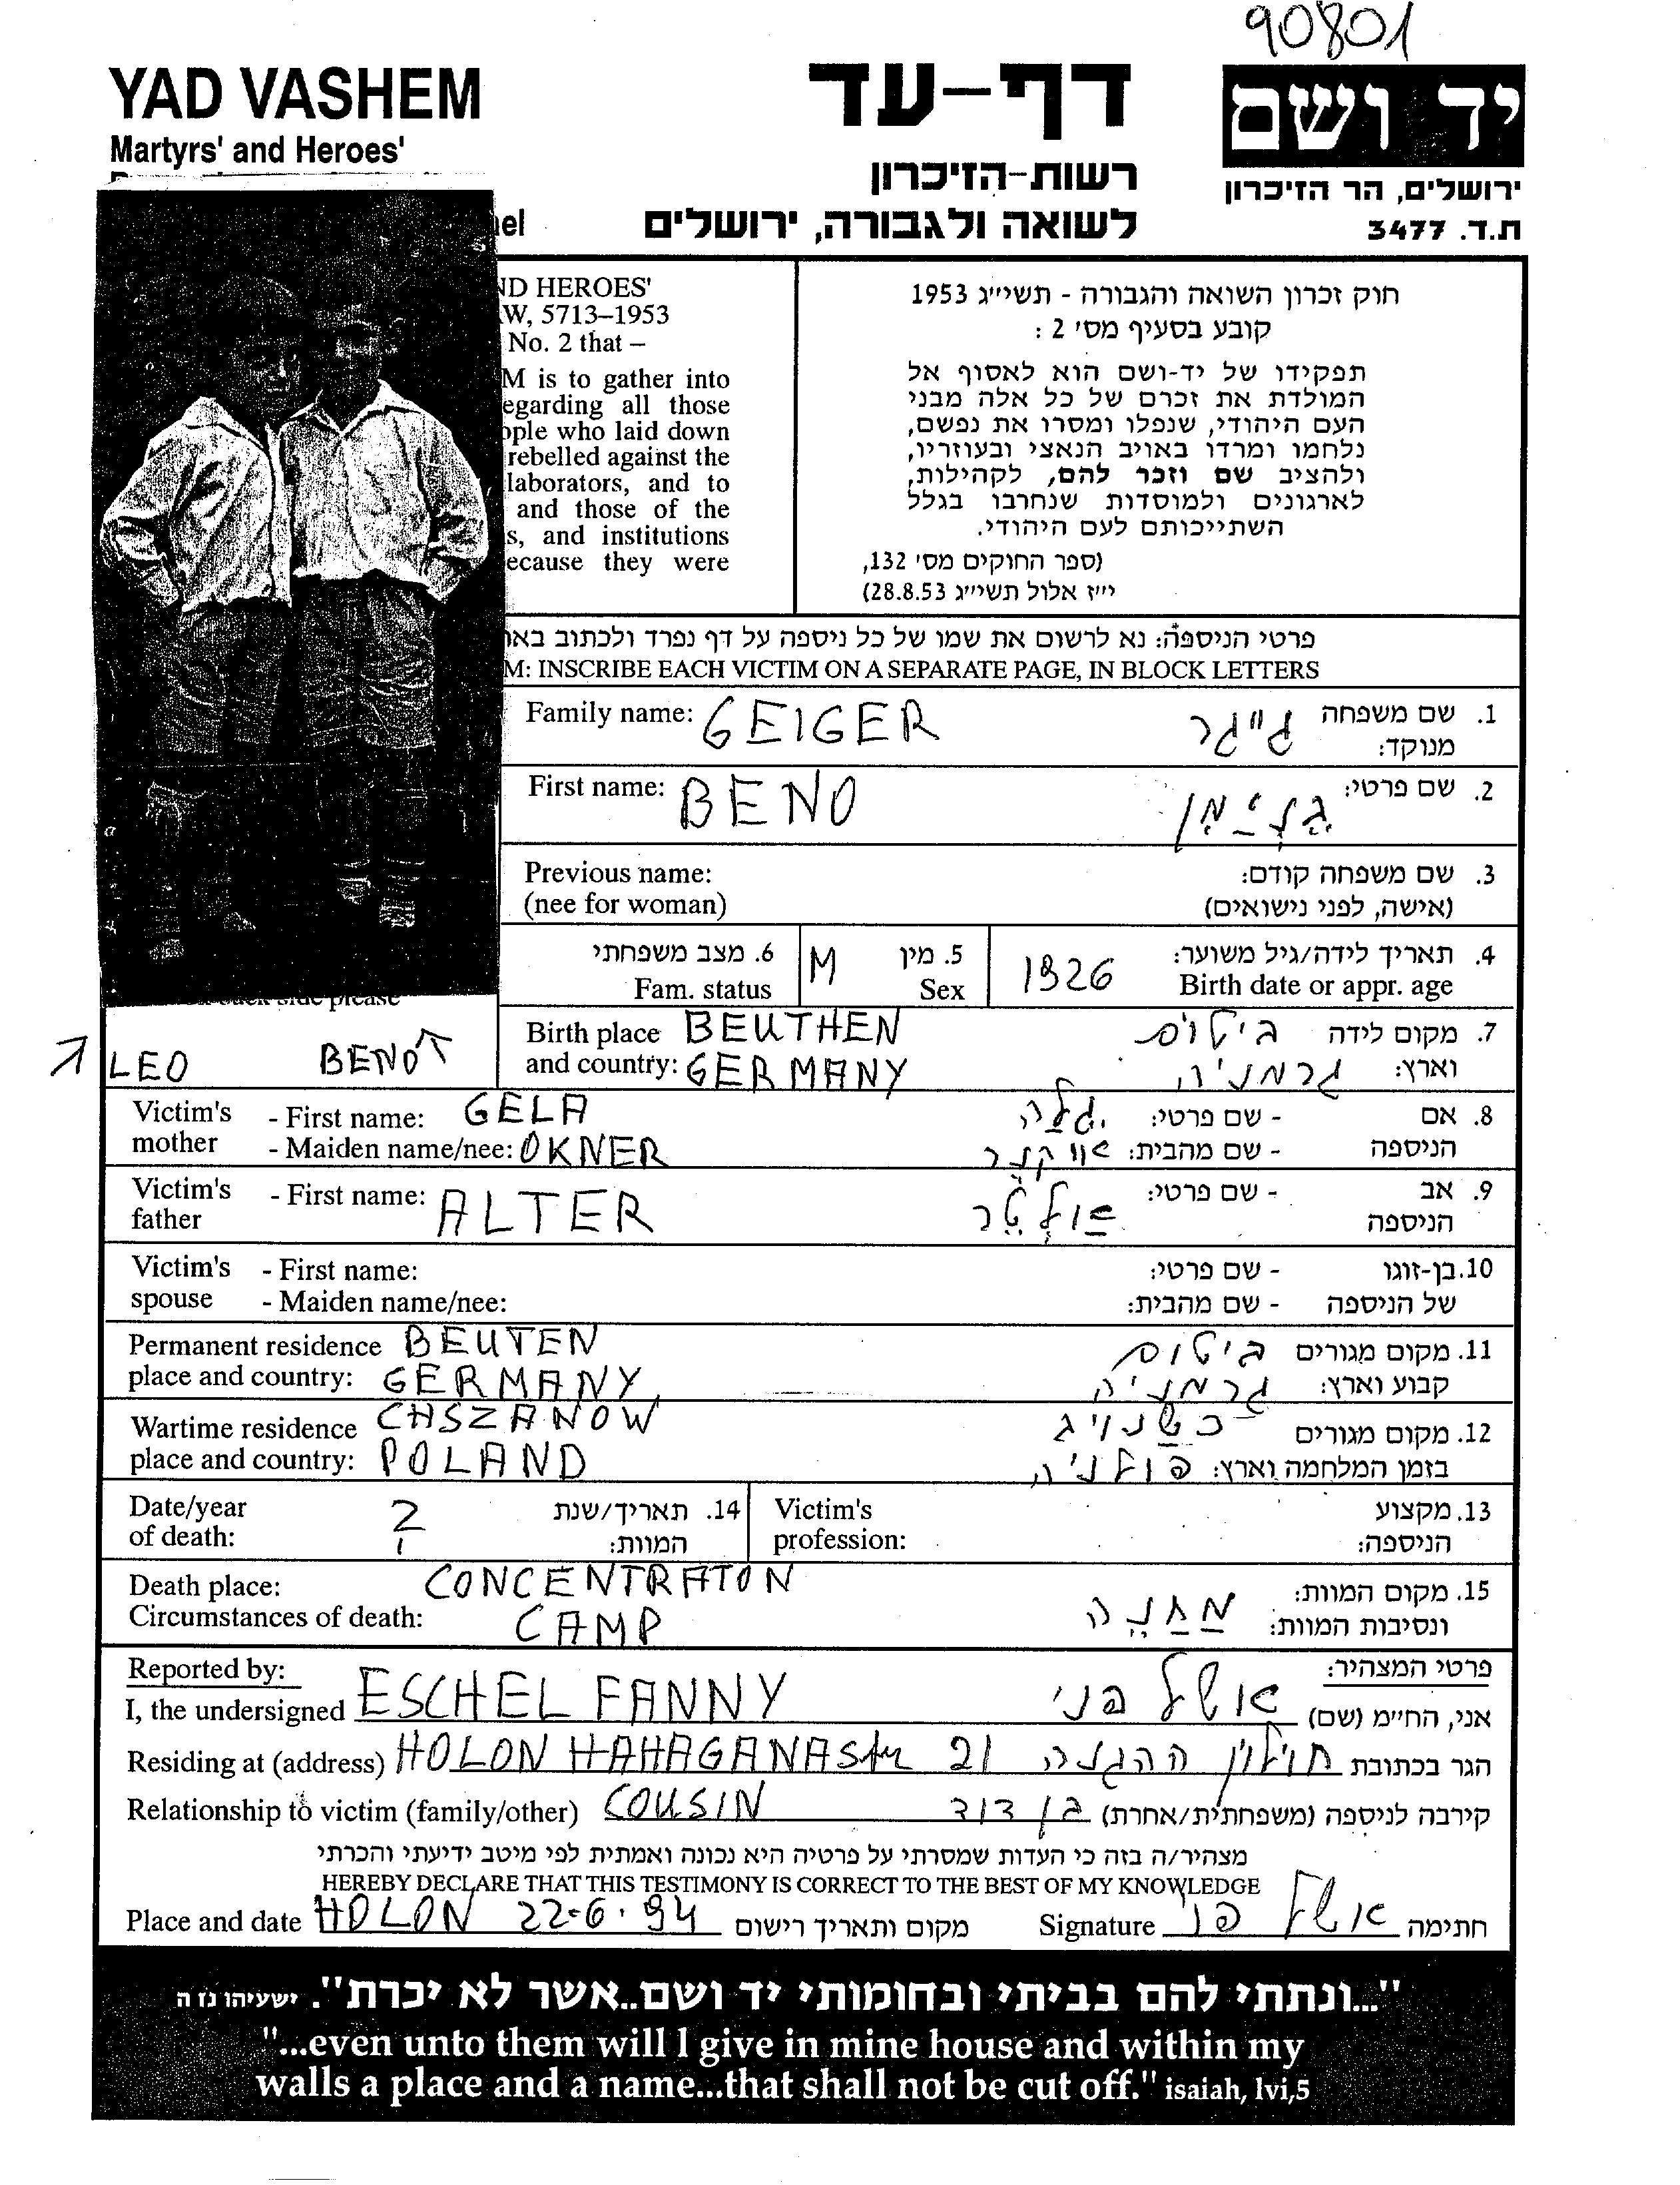 90801
YAD VASHEM
Martyrs' and Heroes'
דף-עד
רשות-הזיכרון
לשואה ולגבורה, ירושלים
יד ושם
ירושלים, הר הזיכרון
ת.ד. 3477
ND HEROES'
W, 5713–1953
No. 2 that –
M is to gather into
egarding all those
ople who laid down
rebelled against the
laborators, and to
and those of the
s, and institutions
ecause they were
חוק זכרון השואה והגבורה - תשי״ג 1953
קובע בסעיף מס' 2 :
תפקידו של יד-ושם הוא לאסוף אל
המולדת את זכרם של כל אלה מבני
העם היהודי, שנפלו ומסרו את נפשם,
נלחמו ומרדו באויב הנאצי ובעוזריו,
ולהציב שם וזכר להם, לקהילות,
לארגונים ולמוסדות שנחרבו בגלל
השתייכותם לעם היהודי.
(ספר החוקים מס' 132,
י״ז אלול תשי״ג 28.8.53)
פרטי הניספה: נא לרשום את שמו של כל ניספה על דף נפרד ולכתוב באו
M: INSCRIBE EACH VICTIM ON A SEPARATE PAGE, IN BLOCK LETTERS
Family name: GEIGER גייגר 1. שם משפחה
מנוקד:
First name: BENO 2. שם פרטי:
Previous name: 3. שם משפחה קודם:
(nee for woman) (אישה, לפני נישואים)
6. מצב משפחתי M 5. מין 1926 4. תאריך לידה/גיל משוער:
Fam. status Sex Birth date or appr. age
Birth place BEUTHEN ביטום 7. מקום לידה
and country: GERMANY גרמניה וארץ:
LEO BENO
Victim's - First name: GELA גלה - שם פרטי: 8. אם
mother - Maiden name/nee: OKNER אוקנר - שם מהבית: הניספה
Victim's - First name: ALTER אולטר - שם פרטי: 9. אב
father הניספה
Victim's - First name: - שם פרטי: 10. בן-זוגו
spouse - Maiden name/nee: - שם מהבית: של הניספה
Permanent residence BEUTEN ביטום 11. מקום מגורים
place and country: GERMANY גרמניה קבוע וארץ:
Wartime residence CHSZANOW כשנויג 12. מקום מגורים
place and country: POLAND פולניה בזמן המלחמה וארץ:
Date/year ? 14. תאריך/שנת Victim's 13. מקצוע
of death: המוות: profession: הניספה:
Death place: CONCENTRATON 15. מקום המוות:
Circumstances of death: CAMP מחנה ונסיבות המוות:
Reported by: פרטי המצהיר:
I, the undersigned ESCHEL FANNY אשל פני אני, החי״מ (שם)
Residing at (address) HOLON HAHAGANA Str 21 חולון ההגנה הגר בכתובת
Relationship to victim (family/other) COUSIN בן דוד קירבה לניספה (משפחתית/אחרת)
מצהיר/ה בזה כי העדות שמסרתי על פרטיה היא נכונה ואמתית לפי מיטב ידיעתי והכרתי
HEREBY DECLARE THAT THIS TESTIMONY IS CORRECT TO THE BEST OF MY KNOWLEDGE
Place and date HOLON 22-6.94 מקום ותאריך רישום Signature אשל פני חתימה
"...ונתתי להם בביתי ובחומותי יד ושם..אשר לא יכרת". ישעיהו נז ה
"...even unto them will I give in mine house and within my
walls a place and a name...that shall not be cut off." isaiah, lvi,5